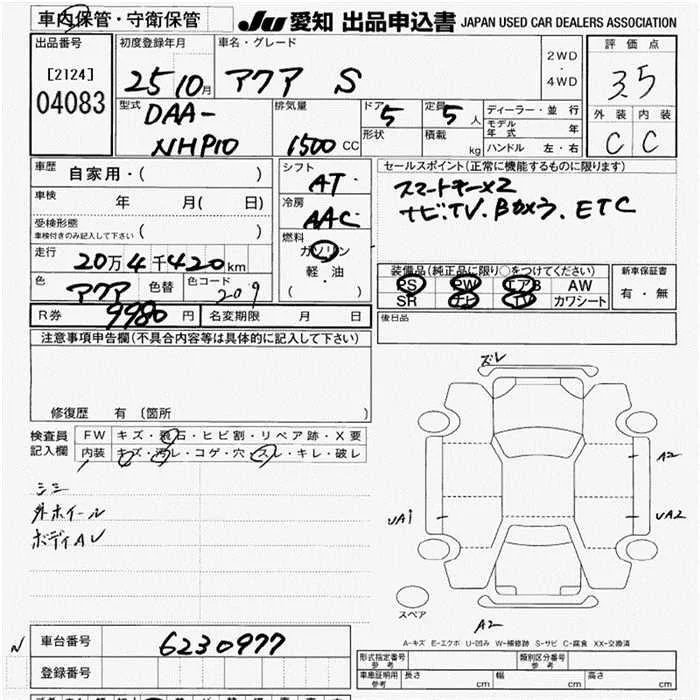 車内保管・守衛保管
JU 愛知 出品申込書 JAPAN USED CAR DEALERS ASSOCIATION
出品番号
[2124]
04083
初度登録年月
25 10月
車名・グレード
アクア S
2WD
・
4WD
評価点
3.5
外装 内装
C C
型式
DAA-
NHP10
排気量
1500 CC
ドア
5
形状
定員
5 人
積載
kg
ディーラー・並行
モデル年式 年
ハンドル 左・右
車歴
自家用・( )
車検
年 月( 日)
受検形態
車検付きのみ記入して下さい ( )
走行
20万4千420km
色
アクア
色替
色コード
209
シフト
AT
冷房
AAC
燃料
ガソリン
軽・油
( ・ )
セールスポイント(正常に機能するものに限ります)
スマートキー×2
ナビ.TV.Bカメラ.ETC
装備品(純正品に限り○をつけてください)
PS PW エアB AW
SR ナビ TV カワシート
新車保証書
有・無
後日品
R券 9980 円
名変期限 月 日
注意事項申告欄(不具合内容等は具体的に記入して下さい)
修復歴 有(箇所 )
検査員
記入欄
FW キズ・飛石・ヒビ割・リペア跡・X要
内装 キズ・汚レ・コゲ・穴・スレ・キレ・破レ
ミミ
外ホイール
ボディAU
ズレ
A2
UA1
UA2
スペア
A2
A-キズ E-エクボ U-凹み W-補修跡 S-サビ C-腐食 XX-交換済
N
車台番号
6230977
登録番号
形式指定番号
参考
類別区分番号
参考
車庫証明用
参考
長さ cm
幅 cm
高さ cm